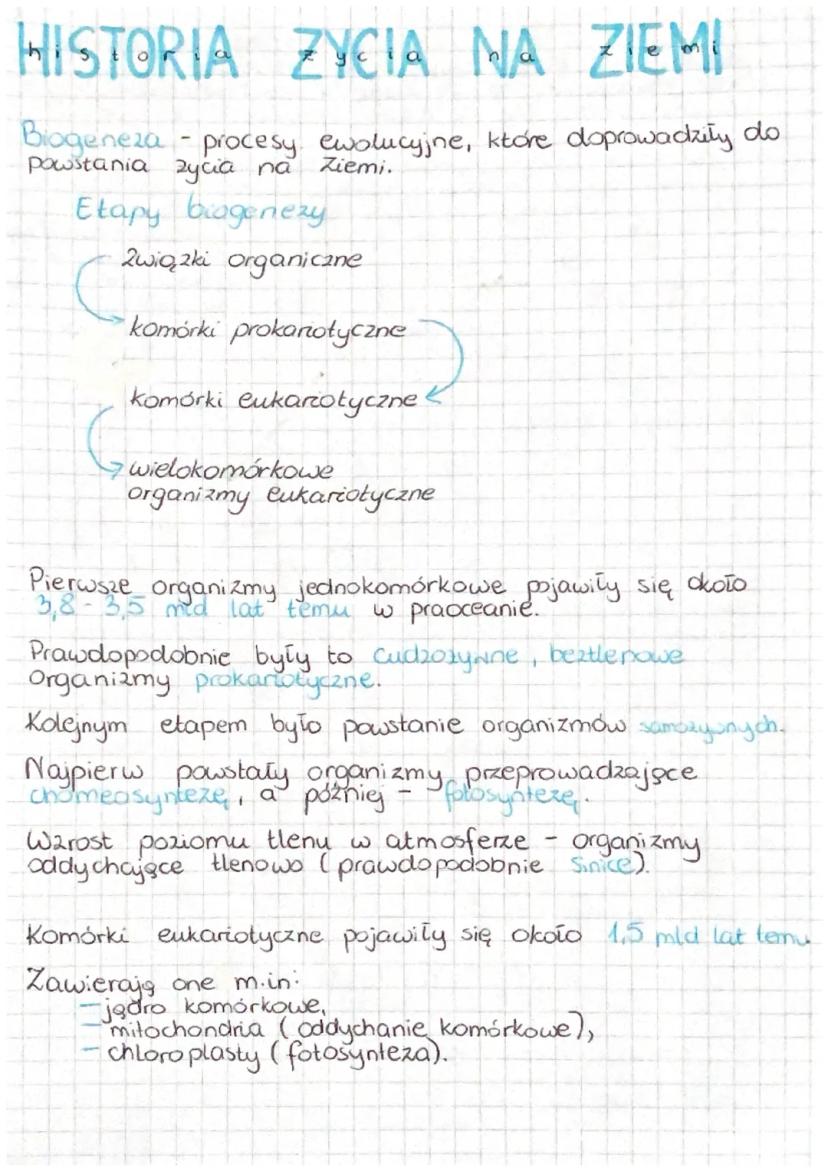 HISTORIA ŻYCIA NA ZIEMI
historia życia na ziemi
Biogeneza - procesy ewolucyjne, które doprowadziły do
powstania życia na Ziemi.
Etapy biogenezy
związki organiczne
komórki prokariotyczne
komórki eukariotyczne
wielokomórkowe
organizmy eukariotyczne
Pierwsze organizmy jednokomórkowe pojawiły się około
3,8 - 3,5 mld lat temu w praoceanie.
Prawdopodobnie były to cudzożywne, beztlenowe
organizmy prokariotyczne.
Kolejnym etapem było powstanie organizmów samożywnych.
Najpierw powstały organizmy przeprowadzające
chomeosyntezę, a później - fotosyntezę.
Wzrost poziomu tlenu w atmosferze - organizmy
oddychające tlenowo (prawdopodobnie sinice).
Komórki eukariotyczne pojawiły się około 1,5 mld lat temu
Zawierają one m.in:
- jądro komórkowe,
- mitochondria (oddychanie komórkowe),
- chloroplasty (fotosynteza).